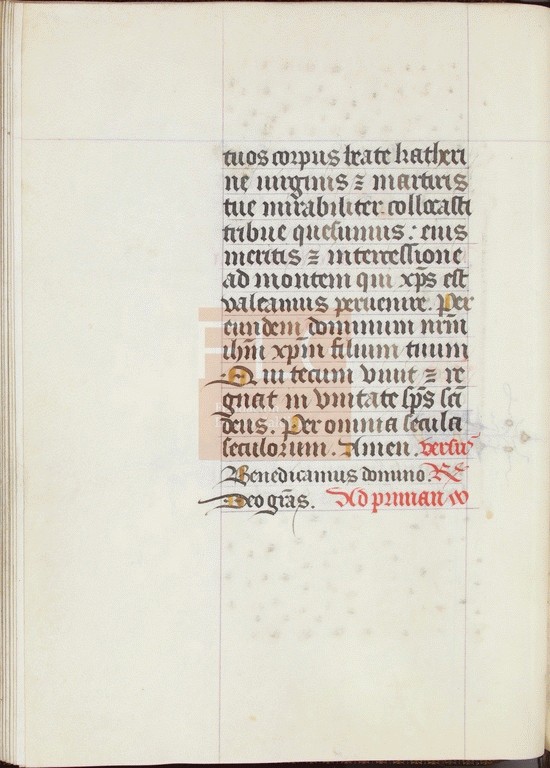 tuos corpus beate katheri
ne uirginis ⁊ martiris
tue mirabiliter collocasti
tribue quesumus : eius
meritis ⁊ intercessione
ad montem qui xp̄s est
valeamus peruenire. Per
eundem dominum nr̄m
ihm̄ xpm̄ filium tuum
Qui tecum viuit ⁊ re
gnat in vnitate sp̄s sc̄i
deus. Per omnia secula
seculorum. Amen. versus
Benedicamus domino. R̄
Deo gr̄as. Ad primam